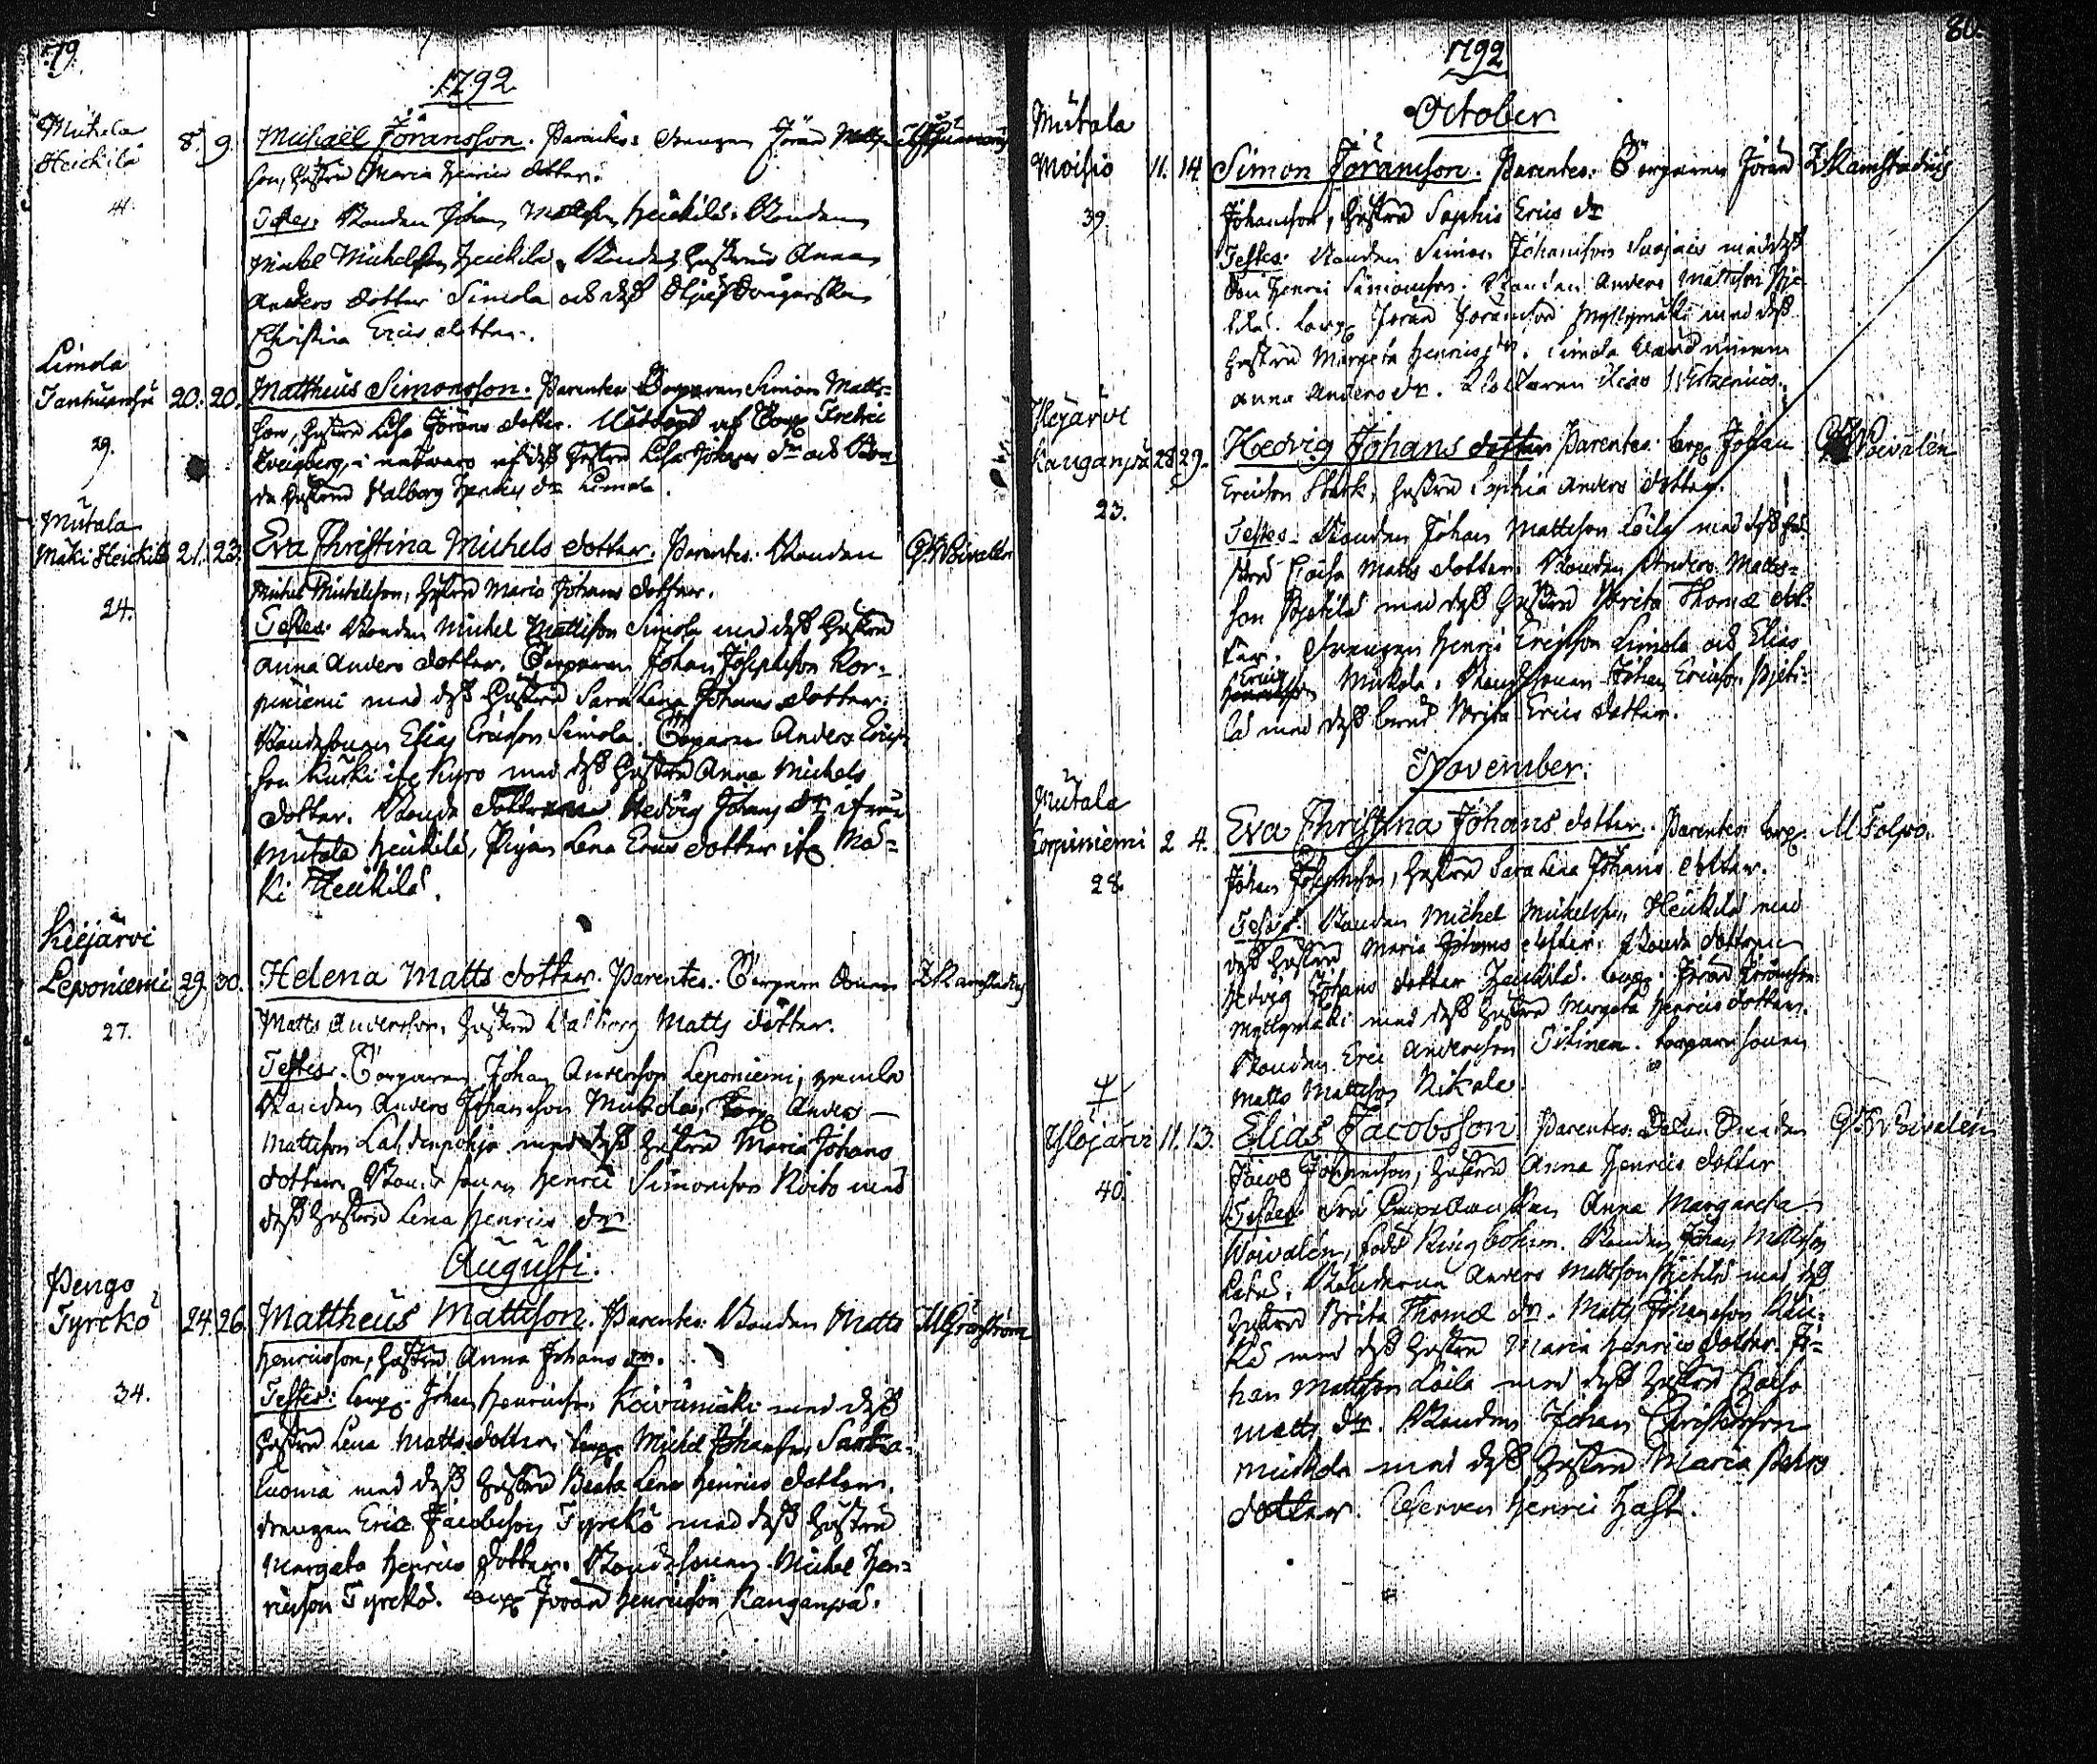 79.
1792
Mutala
Heickilä
8. 9.
41.
Michaël Jöransson. Parentes: Drengen Jöran Matts-
son, hustrun Maria Henrics dotter.
Testes: Bonden Johan Mattsson Heickilä. Bonden
Michel Michelsson Heickilä, Bondens hustru Anna
Anders dotter Simola och
Christina Erics dotter.
Limola
20. 20.
29.
Mattheus Simonsson. Parentes: Torparen Simon Matts-
son, hustrun Lisa Jörans dotter. Nöddöpt af Torp. Fredric
i närwaro af dess hustru Lisa Johans dr och
hustru Walborg Henrics dr Limola.
Mutala
Mäki Heickilä 21. 23.
24.
Eva Christina Michels dotter. Parentes: Bonden
Michel Michelsson, hustrun Maria Johans dotter.
G. Woivalén
Testes: Bonden Michel Mattsson Simola med dess hustru
Anna Anders dotter. Torparen Johan Josephsson Kor-
piniemi med dess hustru Sara Lena Johans dotter.
Bondesonen Elias Ericsson Simola. Torparen Anders Erics-
son Kurki ifr. Kyro med dess hustru Anna Michels
dotter. Bonde dottren Hedvig Johans dr ifrån
Mutala Heickilä, Pigan Lena Erics dotter ifr. Mä-
ki Heickilä.
Keijärvi
Leponiemi 29. 30.
27.
Helena Matts dotter. Parentes: Torpare
Matts Andersson, hustrun Walborg Matts dotter.
Z. Kamstadius
Testes: Torparen Johan Andersson Leponiemi, gamla
Bonden Anders Johansson Mickola, Torp. Anders
Mattsson Lahdenpohja med dess hustru Maria Johans
dotter. Bonde sonen Henric Simonsson Roito med
dess hustru Lena Henrics dr.
Augusti.
Pengo
Tyrckö
24. 26.
34.
Mattheus Mattsson. Parentes: Bonden Matts
Henricsson, hustrun Anna Johans dr.
Testes: Torp. Johan Henricsson Koivumäki med dess
hustru Lena Matts dotter, Torp. Michel Johansson
luoma med dess hustru Beata Lena Henrics dotter.
Drengen Eric Jacobsson Tyrckö med dess hustru
Margeta Henrics dotter. Bondesonen Michel Hen-
ricsson Tyrckö. Torp. Jöran Henricsson Kauganpä.
80.
1792
October
Mutala
Moisio
11. 14.
39.
Simon Jöransson. Parentes: Torparen Jöran
Johansson, hustrun Sophia Erics dr
Z. Kamstadius
Testes: Bonden Simon Johansson med dess
Son Henric Simonsson. Bonden Anders Mattsson Pje-
tilä. Torp. Jöran Jöransson Myllymäki med dess
hustru Margeta Henrics dr. Simola
Anna Anders dr. Klockaren Elias
Ylöjärvi
Kauganpä 28. 29.
23.
Hedvig Johans dotter Parentes: Torp. Johan
Ericsson Stark, hustrun Sophia Anders dotter.
G. Woivalén
Testes: Bonden Johan Mattsson Loila med dess hu-
stru Caisa Matts dotter. Bonden Anders Matts-
son Pjetilä med dess hustru Brita Thomæ dot-
ter. Drengen Henric Ericsson Simola och Elias
Erics
Mickola. Bondesonen Johan Ericsson Pjeti-
lä med dess brud Brita Erics dotter.
November.
Mutala
Korpiniemi 2. 4.
28.
Eva Christina Johans dotter. Parentes: Torp.
Johan Josephsson, hustrun Sara Lena Johans dotter.
M. Tolpo.
Testes: Bonden Michel Michelsson Heickilä med
dess hustru Maria Johans dotter. Bonde dottren
Hedvig Johans dotter Heickilä. Torp. Jöran Jöransson
Myllymäki med dess hustru Margeta Henrics dotter.
Bonden Eric Andersson Tiitinen. Torpare sonen
Matts Mattsson Kikale.
Ylöjärvi 11. 13.
40.
Elias Jacobsson Parentes:
Jacob Johansson, hustrun Anna Henrics dotter
G. Woivalén
Testes: Fru Capellanskan Anna Margareta
Woivalén, född Ringbohm. Bonden Johan Mattsson
Bönderna Anders Mattsson Pjetilä med dess
hustru Brita Thomæ dr. Matts Johansson
med dess hustru Maria Henrics dotter. Jo-
han Mattsson Loila med dess hustru Caisa
Matts dr. Bonden Johan Christersson
Mickola med dess hustru Maria Mats
dotter. Henric Hast.